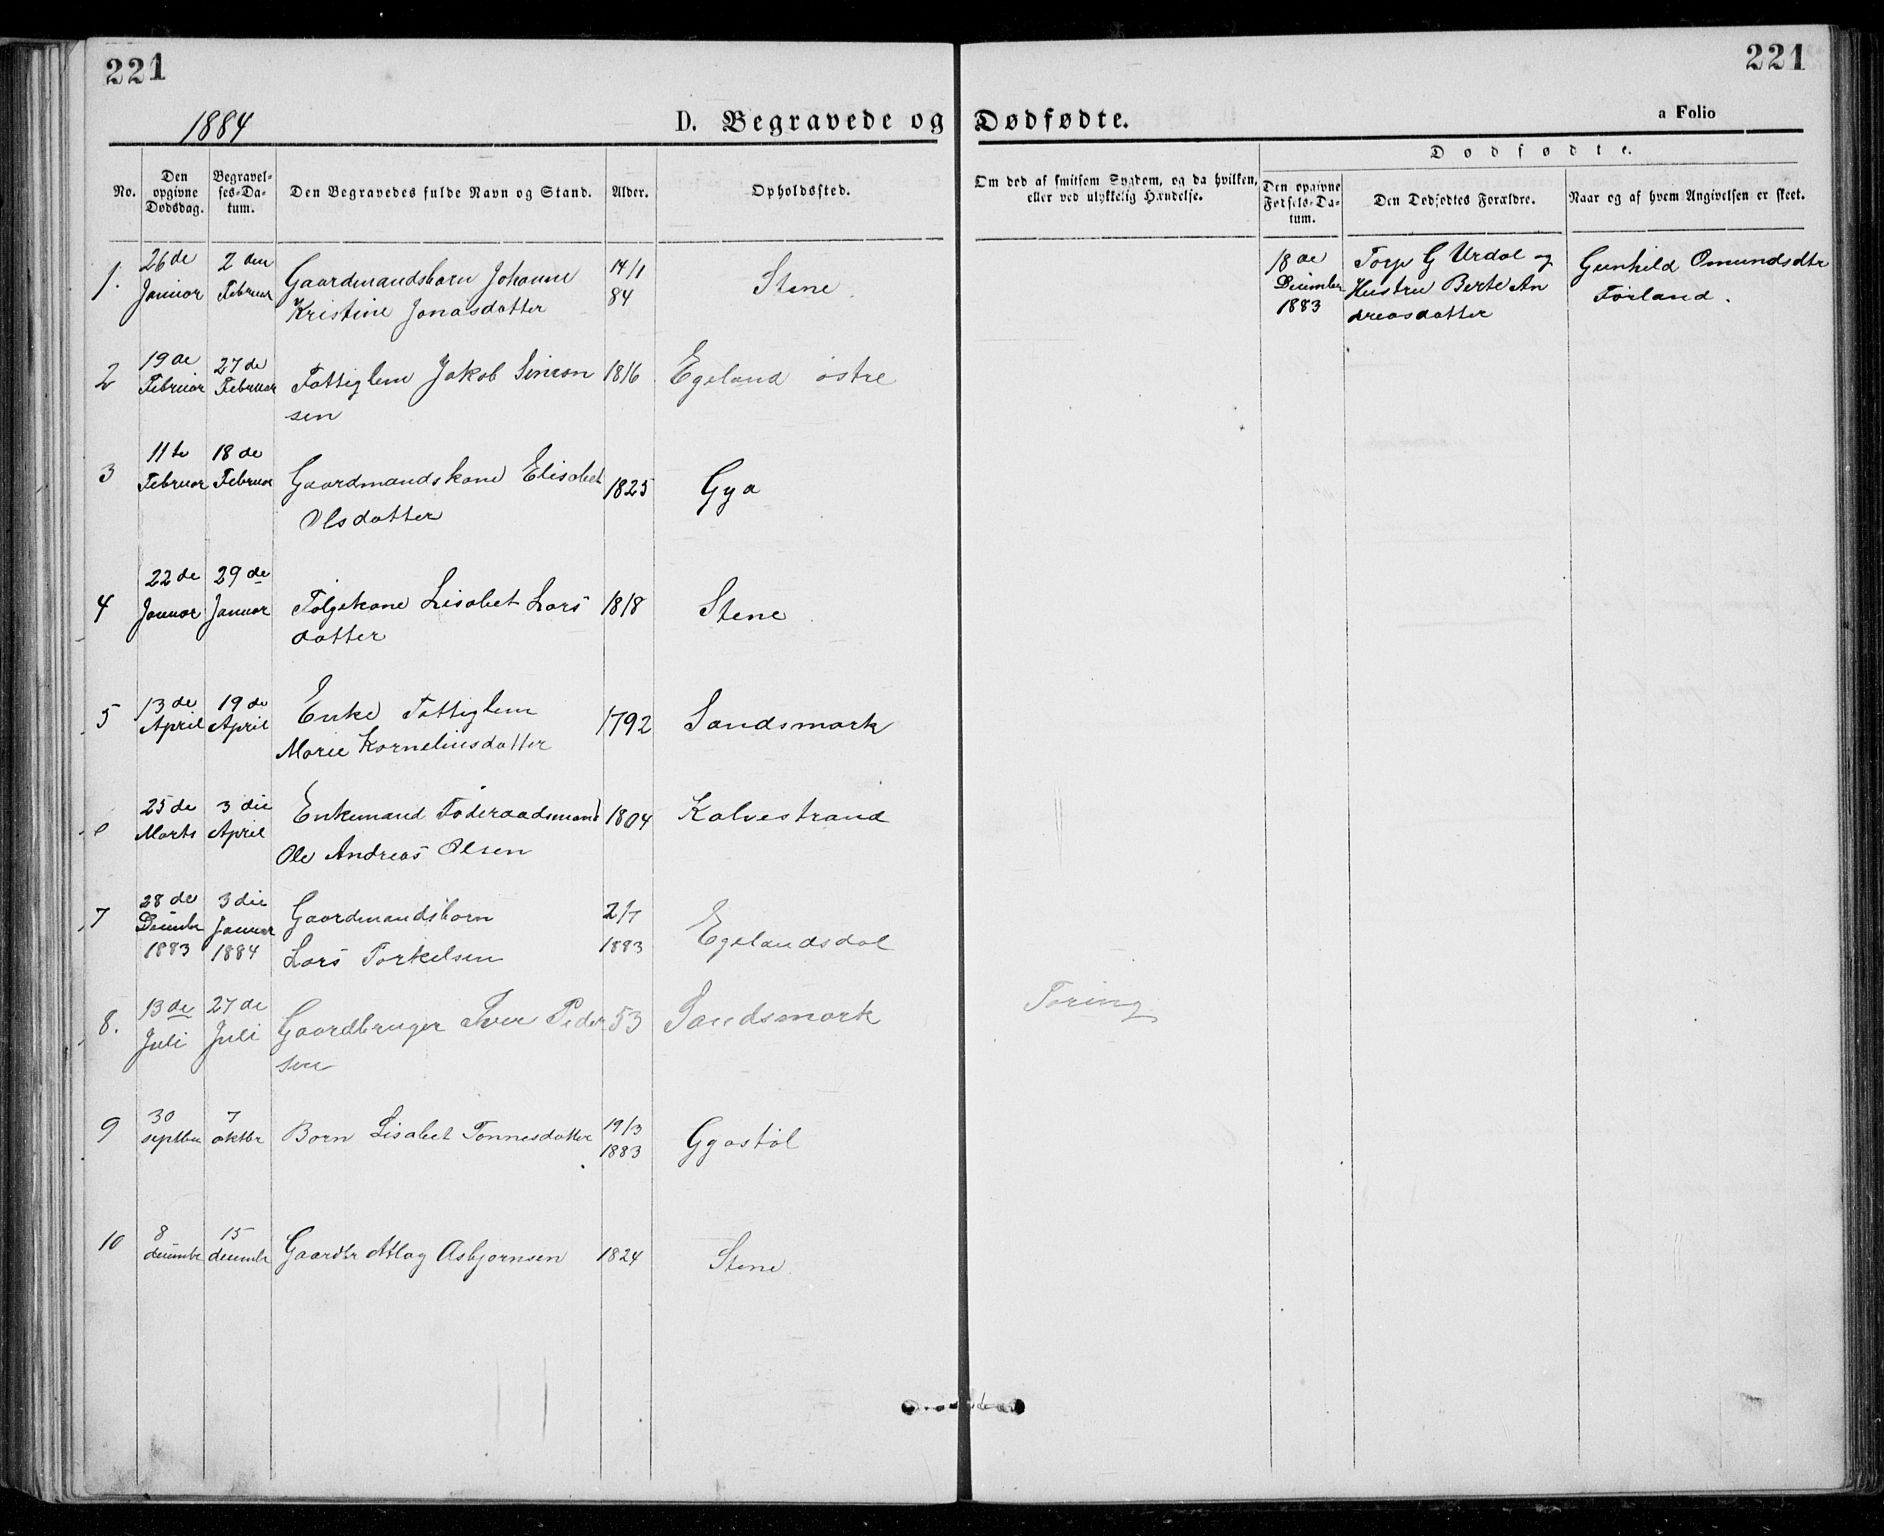 221
221
1884
D. Begravede og Dødfødte.
a Folio
No.
Den opgivne Dødsdag.
Begravelses-Datum.
Den Begravedes fulde Navn og Stand.
Alder.
Opholdssted.
Om død af smitsom Sygdom, og da hvilken, eller ved ulykkelig Hændelse.
Dødfødte.
Den opgivne Fødsels-Datum.
Den Dødfødtes Forældre.
Naar og af hvem Angivelsen er skeet.
1. 26de Januar 2den Februar Gaardmandsbarn Johanne 14/1 84 Stene
Kristine Jonasdatter
18de December 1883
Torp G Urdal og
Hustru Berte An
dreasdatter
Gunhild Omundsdtr
Førland.
2 19de Februar 27de Februar Fattiglem Jakob Simon 1816 Egeland østre
sen
3 11te Februar 18de Februar Gaardmandskone Elisabet 1825 Gya
Olsdatter
4 22de Januar 29de Januar Følgekone Lisabet Lars 1818 Stene
datter
5 13de April 19de April Enke Fattiglem 1792 Sandsmark
Marie Kornelinsdatter
25de Marts 3die April Enkemand Føderaadsmand 1804 Kalvestrand
Ole Andreas Olsen
7 28de December 1883 3die Januar 1884 Gaardmandsbarn 2/7 1883 Egelandsdal
Lars Torkelsen
8. 13de Juli 27de Juli Gaardbruger Iver Peder 53 Sandsmark
sen
Tæring
9 30 septbr 7 oktbr Barn Lisabet Tønnesdatter 19/3 1883 Gyastøl
10 8 decembr 15 decembr Gaardbr Atlag Asbjørnsen 1824 Stene